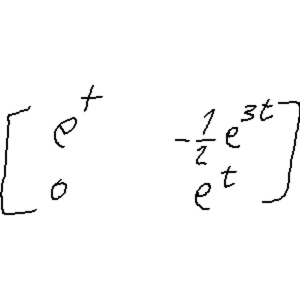 [ e^t  -1/2 e^{3t}
0  e^t ]